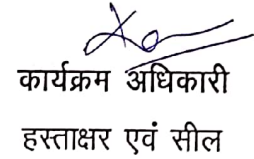 कार्यक्रम अधिकारी
हस्ताक्षर एवं सील